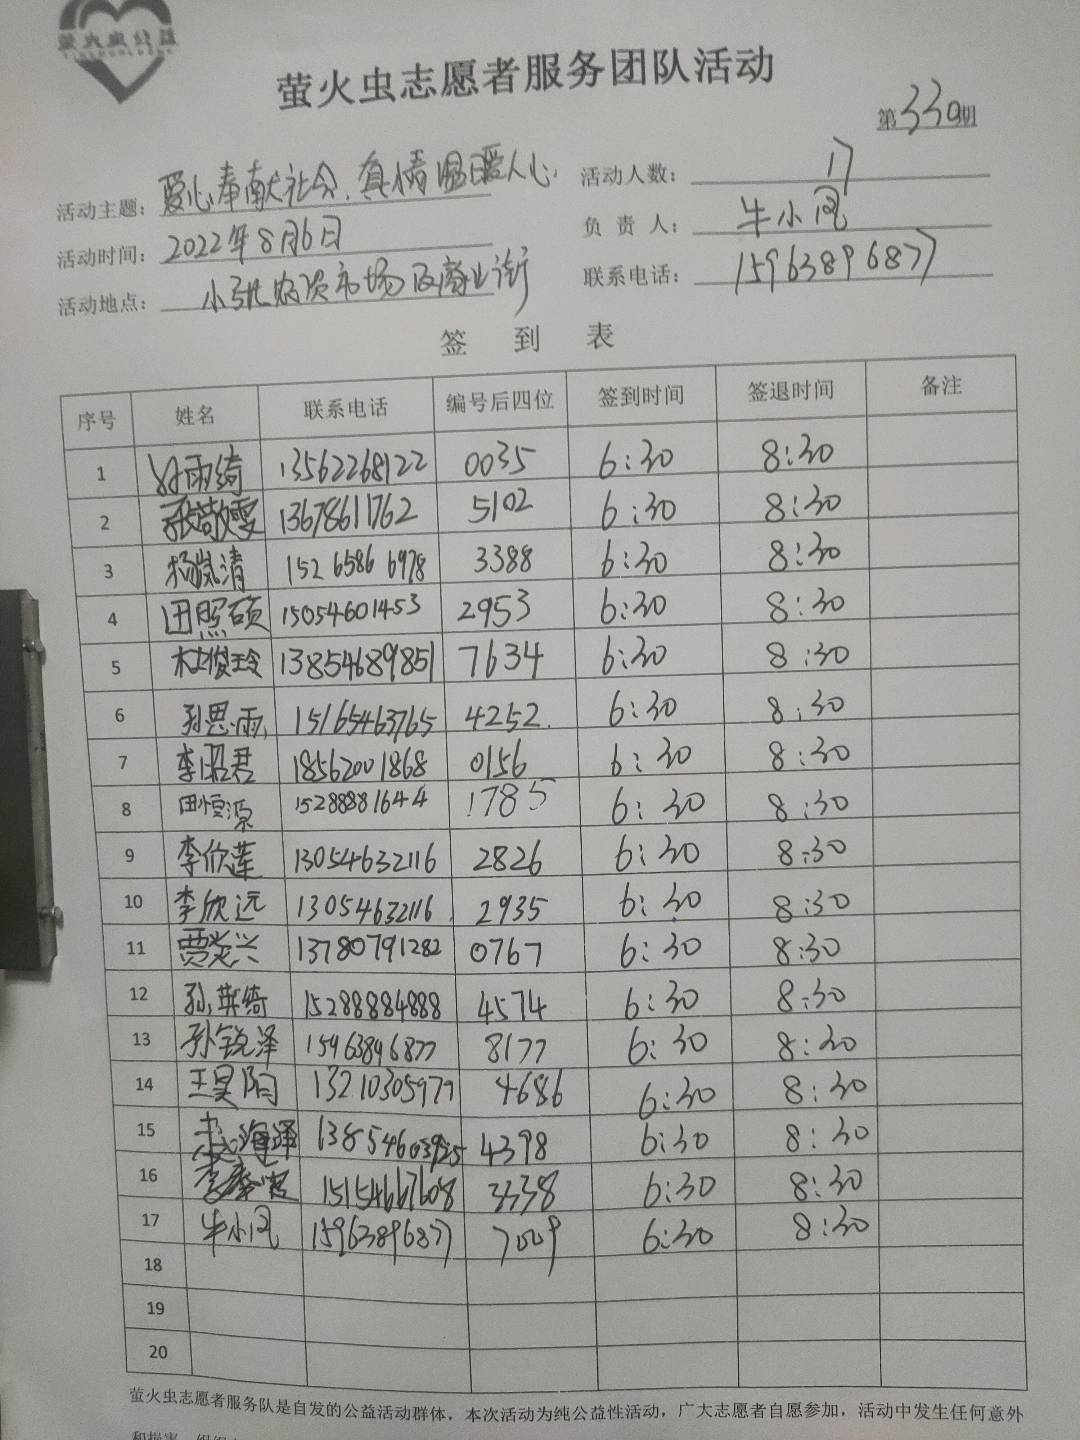 萤火虫公益
萤火虫志愿者服务团队活动
第330期
活动主题：爱心奉献社会、真情温暖人心 活动人数：17
活动时间：2022年8月6日 负责人：牛小凤
活动地点：小张农资市场及商业街 联系电话：15963896877
签到表
序号 姓名 联系电话 编号后四位 签到时间 签退时间 备注
1 雨绮 13562268122 0035 6:30 8:30
2 张敬雯 13678611762 5102 6:30 8:30
3 杨岚清 152 6586 6978 3388 6:30 8:30
4 田照硕 15054601453 2953 6:30 8:30
5 杜俊玲 13854689851 7634 6:30 8:30
6 孙思雨 15165463765 4252 6:30 8:30
7 李昭君 18562001868 0156 6:30 8:30
8 田恒源 15288881644 1785 6:30 8:30
9 李欣莲 13054632116 2826 6:30 8:30
10 李欣远 13054632116 2935 6:30 8:30
11 贾兴 13780791282 0767 6:30 8:30
12 孙英绮 15288884888 4574 6:30 8:30
13 孙锐泽 15963896877 8177 6:30 8:30
14 王昊阳 13210305979 4686 6:30 8:30
15 海泽 13854603925 4398 6:30 8:30
16 李 15154667608 3338 6:30 8:30
17 牛小凤 15963896877 7009 6:30 8:30
18
19
20
萤火虫志愿者服务队是自发的公益活动群体，本次活动为纯公益性活动，广大志愿者自愿参加，活动中发生任何意外